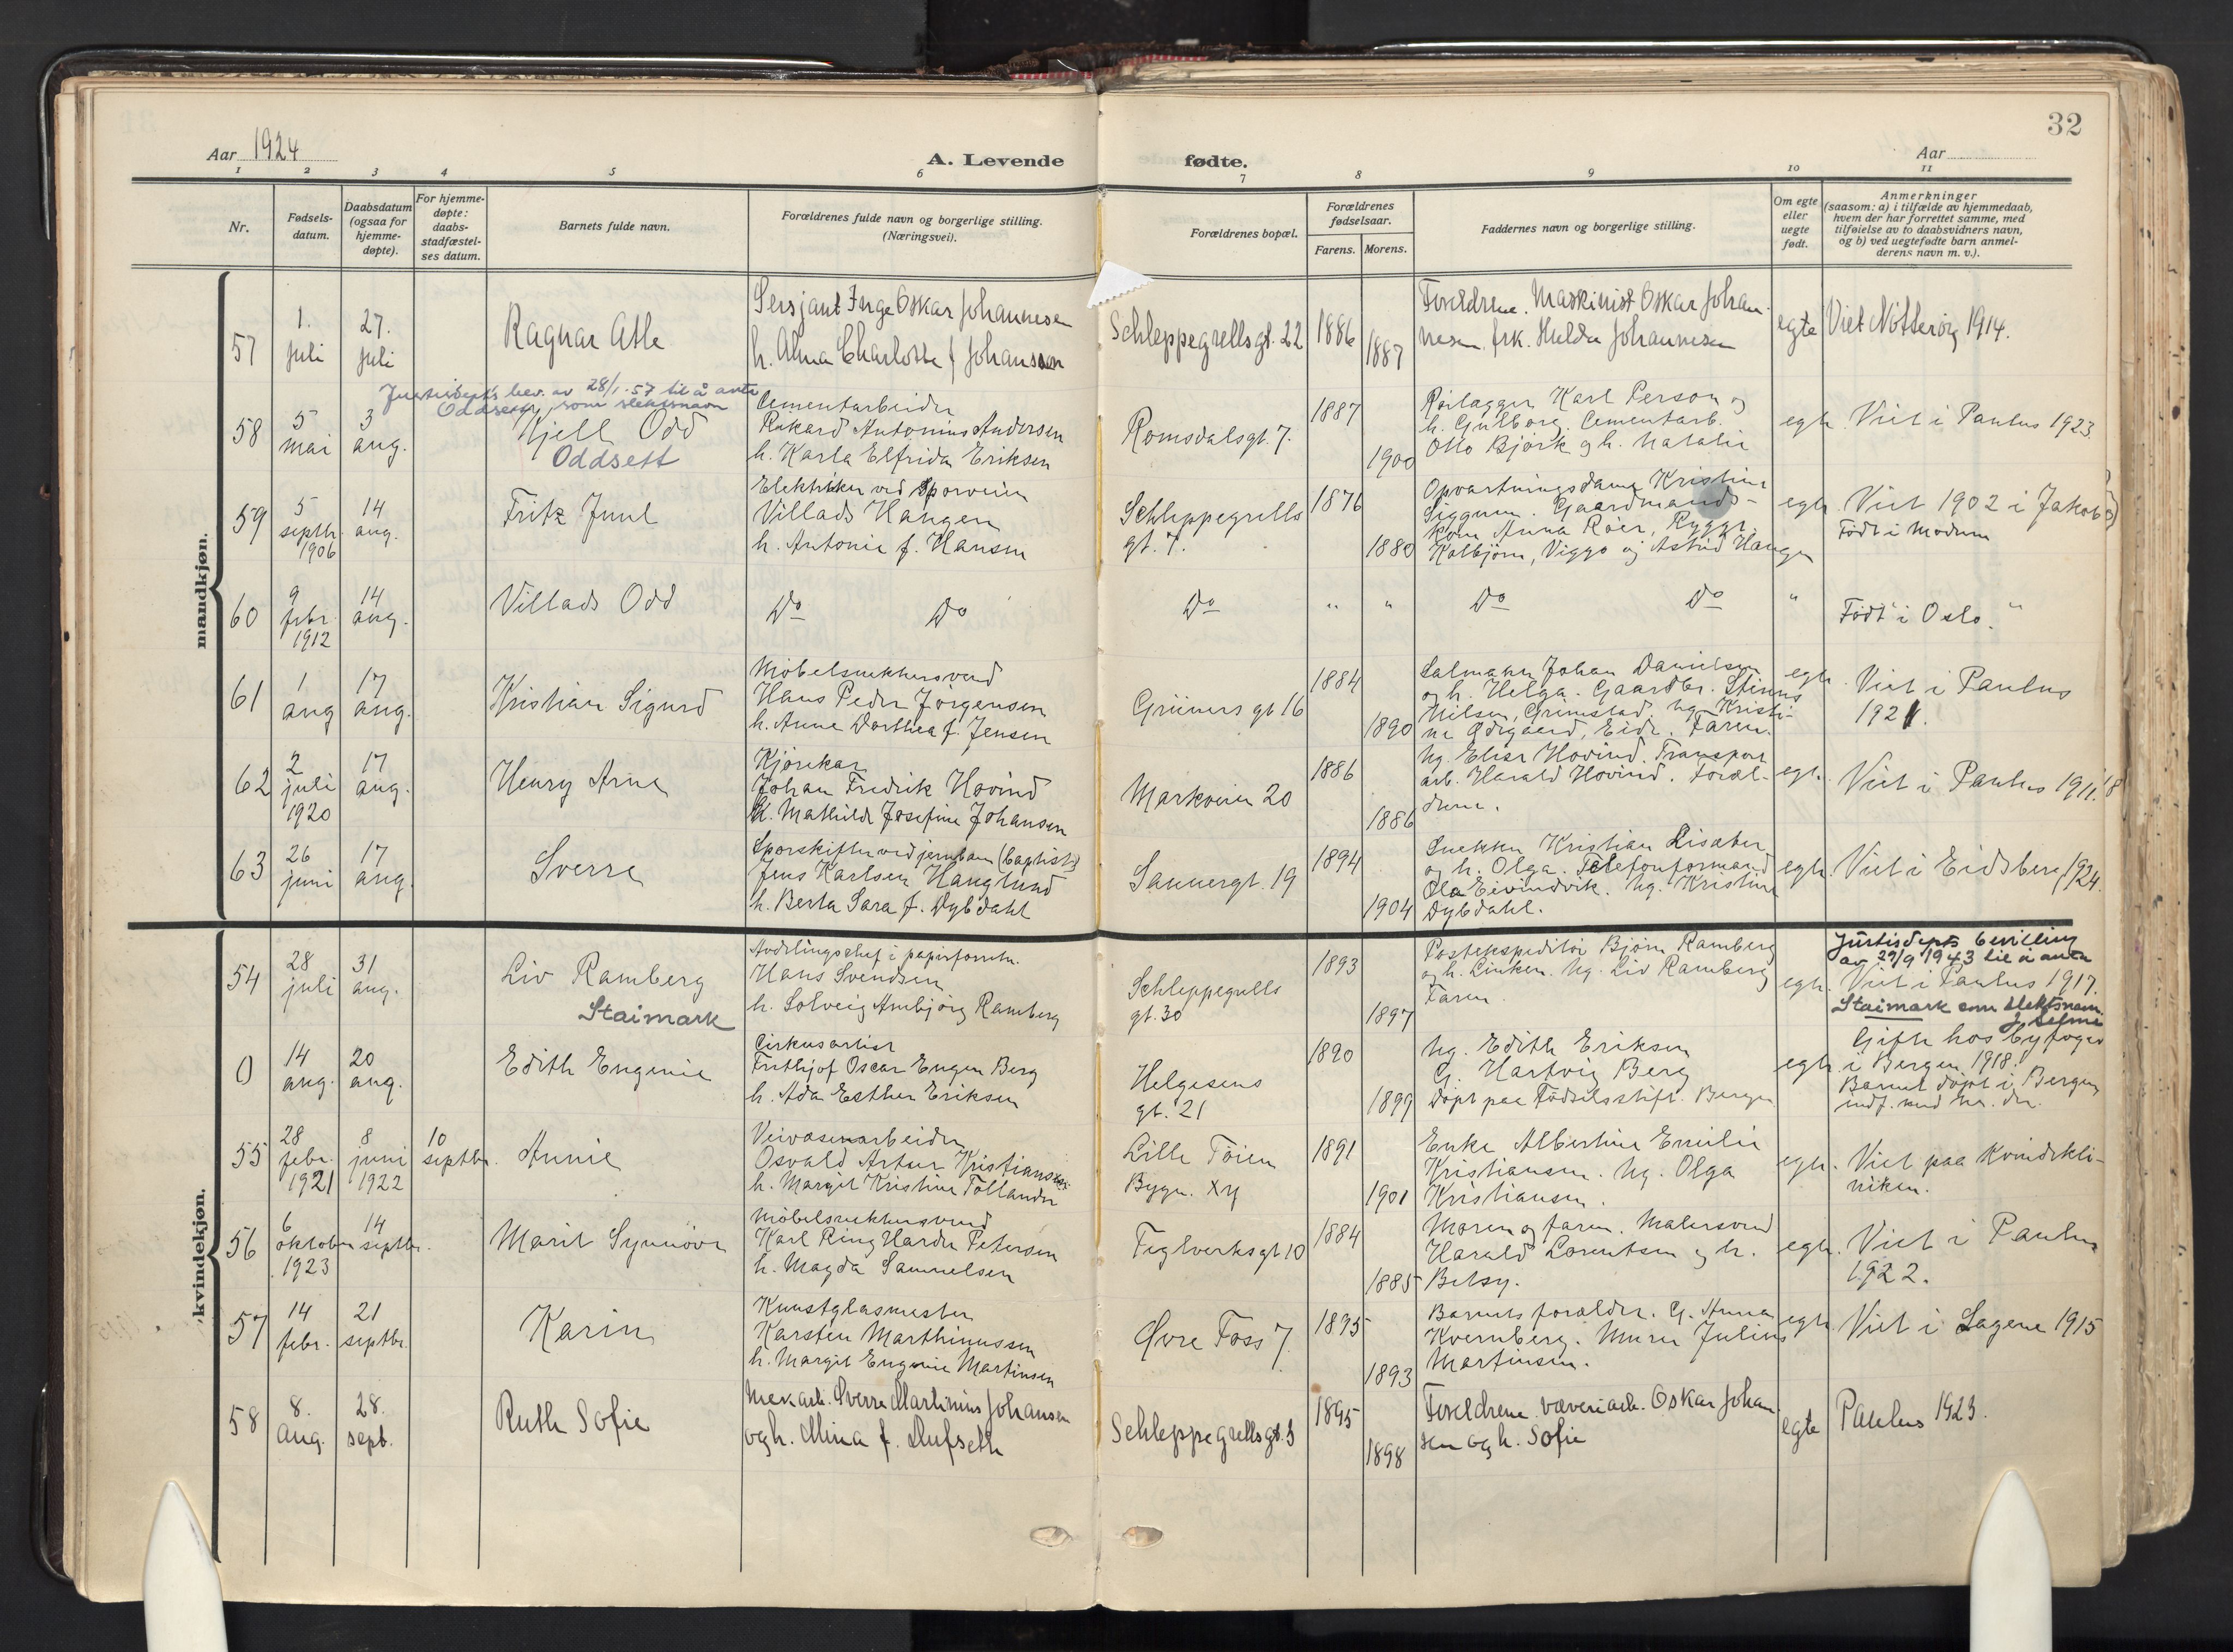 32
Aar 1924
A. Levende fødte.
Aar
1 2 3 4 5 6 7 8 9 10 11
Nr.
Fødsels-
datum.
Daabsdatum
(ogsaa for
hjemme-
døpte).
For hjemme-
døpte:
daabs-
stadfæstel-
ses datum.
Barnets fulde navn.
Forældrenes fulde navn og borgerlige stilling.
(Næringsvei).
Forældrenes bopæl.
Forældrenes
fødselsaar.
Farens. Morens.
Faddernes navn og borgerlige stilling.
Om egte
eller
uegte
født.
Anmerkninger
(saasom: a) i tilfælde av hjemmedaab,
hvem der har forrettet samme, med
tilføielse av to daabsvidners navn,
og b) ved uegtefødte barn anmel-
derens navn m. v.).
mandkjøn.
57
1.
juli
27.
juli
Ragnar Atle
Sersjant Inge Oskar Johannesen
h. Alma Charlotte f Johanson
Schleppegrellsgt. 22
1886
1887
Foreldrene. Maskinist Oskar Johan-
nesen frk. Hulda Johannesen
egte
Viet Nøtterøy 1914.
Justisdepts bev. av 28/1-57 til å anta
Oddsett som slektsnavn
58
5
mai
3
aug.
Kjell Odd
Oddsett
Cementarbeider
Rikard Antonius Andersen
h. Karla Elfrida Eriksen
Romsdalsgt. 7.
1887
1900
Rørlægger Karl Person og
h. Gulborg. Cementarb.
Otto Bjørk og h. Natalie
egte.
Viet i Paulus 1923.
59
5
septbr.
1906
14
aug.
Fritz Juul
Elektriker ved Sporveien
Villads Haugen
h. Antonie f. Hansen
Schleppegrells
gt. 7.
1876
1880
Opvartningsdame Kristine
Siggum. Gaardmands-
kone Anna Røer, Rygge.
Kolbjørn, Viggo og Astrid Haugen
egte.
Viet 1902 i Jakob
Født i Modum
60
9
febr.
1912
14
aug.
Villads Odd
Do Do
Do
" "
Do Do
"
Født i Oslo. "
61
1
aug
17
aug.
Kristian Sigurd
Møbelsnekkersvend
Hans Peder Jørgensen
h. Anne Dorthea f. Jensen
Grüners gt 16
1884
1890
Salmaker Johan Danielsen
og h. Helga. Gaardbr. Stinus
Nilsen, Grimstad. Ug. Kristi-
ne Ødegaard, Eidr. Faren.
egte.
Viet i Paulus
1921.
62
2
juli
1920
17
aug.
Henry Arne
Kjørekar
Johan Fredrik Hovind
h. Mathilde Josefine Johansen
Markveien 20
1886
1886
Ug. Elise Hovind. Transport
arb. Harald Hovind. Foræl-
drene.
egte.
Viet i Paulus 1911.
63
26
juni
17
aug.
Sverre
Sporskifter ved jernban (baptist)
Jens Karlsen Hauglund
h. Berta Sara f. Dybdahl
Sannergt. 19
1894
1904
Snekker Kristian Lisæter
og h. Olga. Telefonformand
Ola Eivindvik. Ug. Kristine
Dybdahl.
egte.
Viet i Eidsberg 1924.
kvindekjøn.
54
28
juli
31
aug.
Liv Ramberg
Staimark
Avdelingschef i papirforretn.
Hans Svendsen
h. Solveig Ambjørg Ramberg
Schleppegrells
gt. 30
1893
1897
Postekspeditør Bjørn Ramberg
og h. Linken. Ug. Liv Ramberg
Faren
egte.
Justisdepts bevilling
av 29/9 1943 til å anta
Viet i Paulus 1917.
Staimark som slektsnavn.
0
14
aug.
20
aug.
Edith Engenie
Cirkusartist
Frithjof Oscar Eugen Berg
h. Ada Esther Eriksen
Helgesens
gt. 21
1890
1899
Ug. Edith Eriksen
G. Hartvig Berg
Døpt paa Fødselsstift. Bergen
egte.
Gift hos byfoged
i Bergen 1918.
Barnet døpt i Bergen
indf. med nr. der.
55
28
febr.
1921
8
juni
1922
10
septbr.
Annie
Veivæsenarbeider
Osvald Artur Kristiansen
h. Margit Kristine Tollander
Lille Tøien
Bygn. XY
1891
1901
Enke Albertine Emilie
Kristiansen. Ug. Olga
Kristiansen.
egte.
Viet paa Kvindekli-
niken.
56
6
oktober
1923
14
septbr.
Marit Synnøve
Møbelsnekkersvend
Karl Ring Harder Petersen
h. Magda Samuelsen
Teglverksgt 10
1884
1885
Moren og faren. Malersvend
Harald Lorentsen og h.
Betsy.
egte.
Viet i Paulus
1922.
57
14
febr.
21
septbr.
Karin
Kunstglasmester
Karsten Marthinussen
h. Margit Eugenie Martinsen
Øvre Foss 7.
1895
1893
Barnets forælder. G. Anna
Kvernberg. Murer Julius
Martinsen.
egte.
Viet i Sagene 1915
58
8.
aug.
28.
sept.
Ruth Sofie
Mek arb. Sverre Martinius Johansen
og h. Mina f. Dufseth
Schleppegrellsgt. 3
1895
1898
Foreldrene. væveriarb. Oskar Johan-
sen og h. Sofie
egte
Paulus 1923.